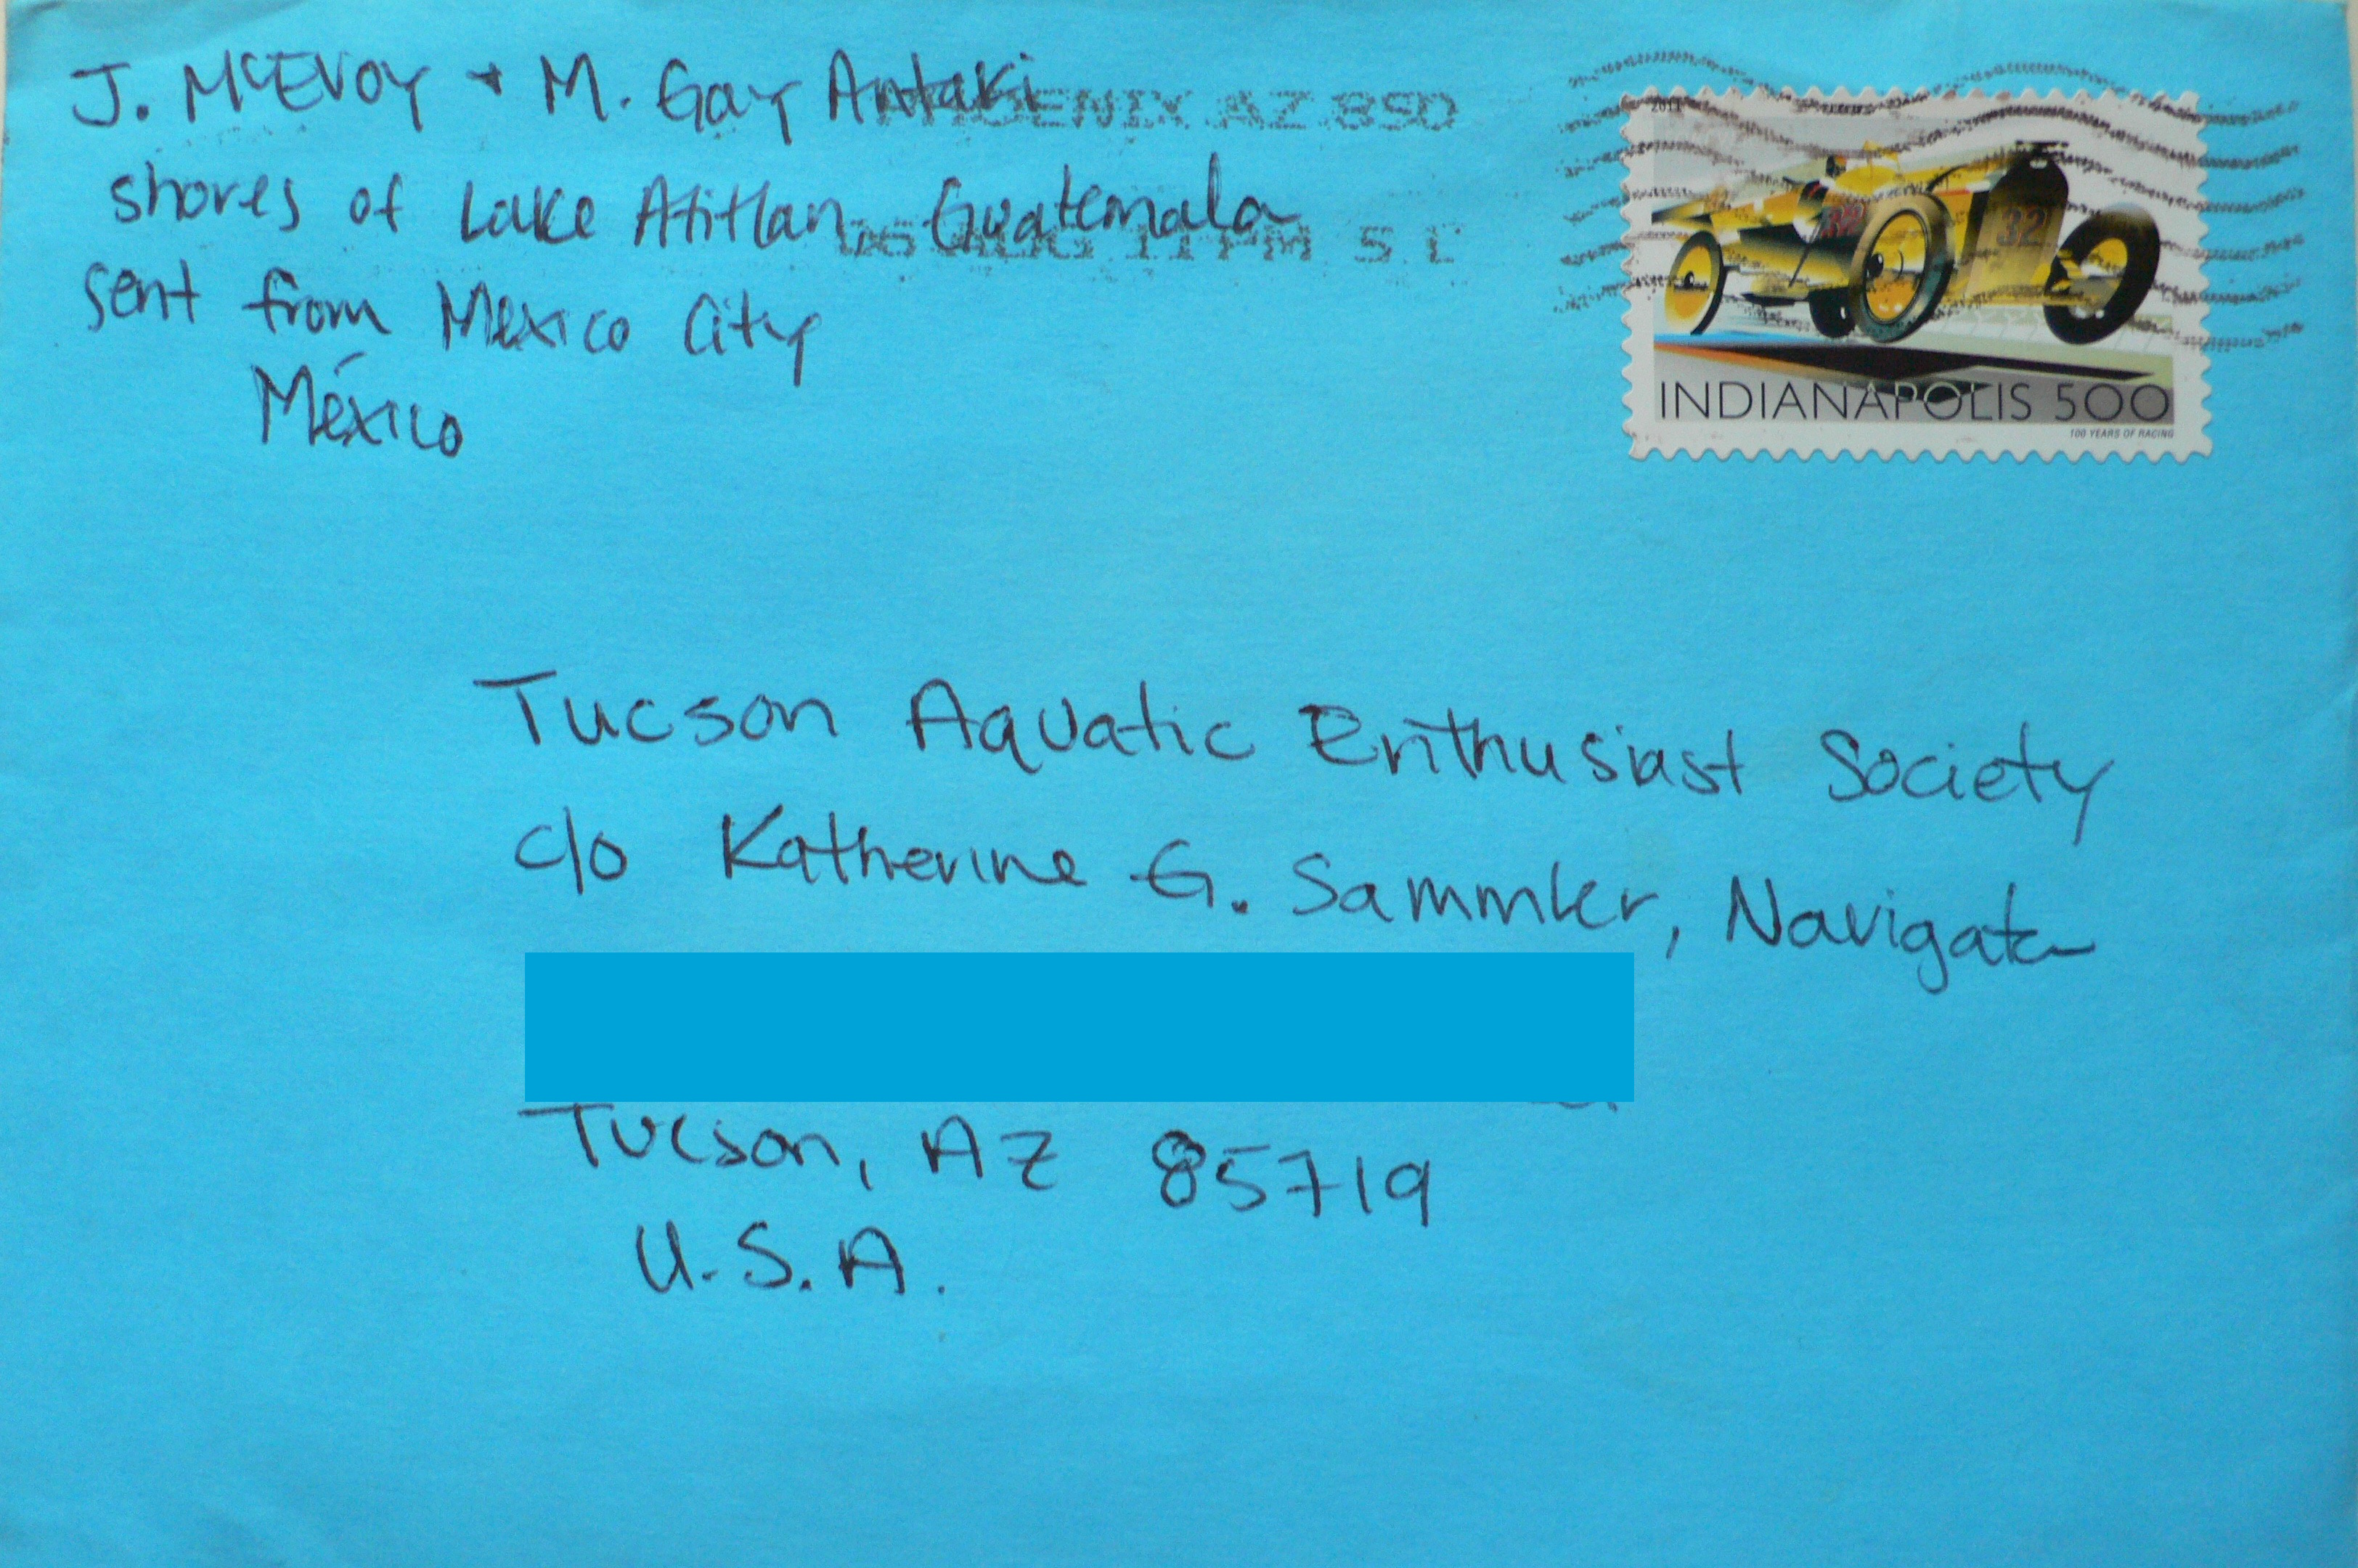 J. McEvoy + M. Gay Antaki
shores of Lake Atitlan, Guatemala
sent from Mexico City
México
PHOENIX AZ 850
06 AUG 11 PM 5 L
2011
32
32
INDIANAPOLIS 500
100 YEARS OF RACING
Tucson Aquatic Enthusiast Society
c/o Katherine G. Sammler, Navigator
Tucson, AZ 85719
U.S.A.